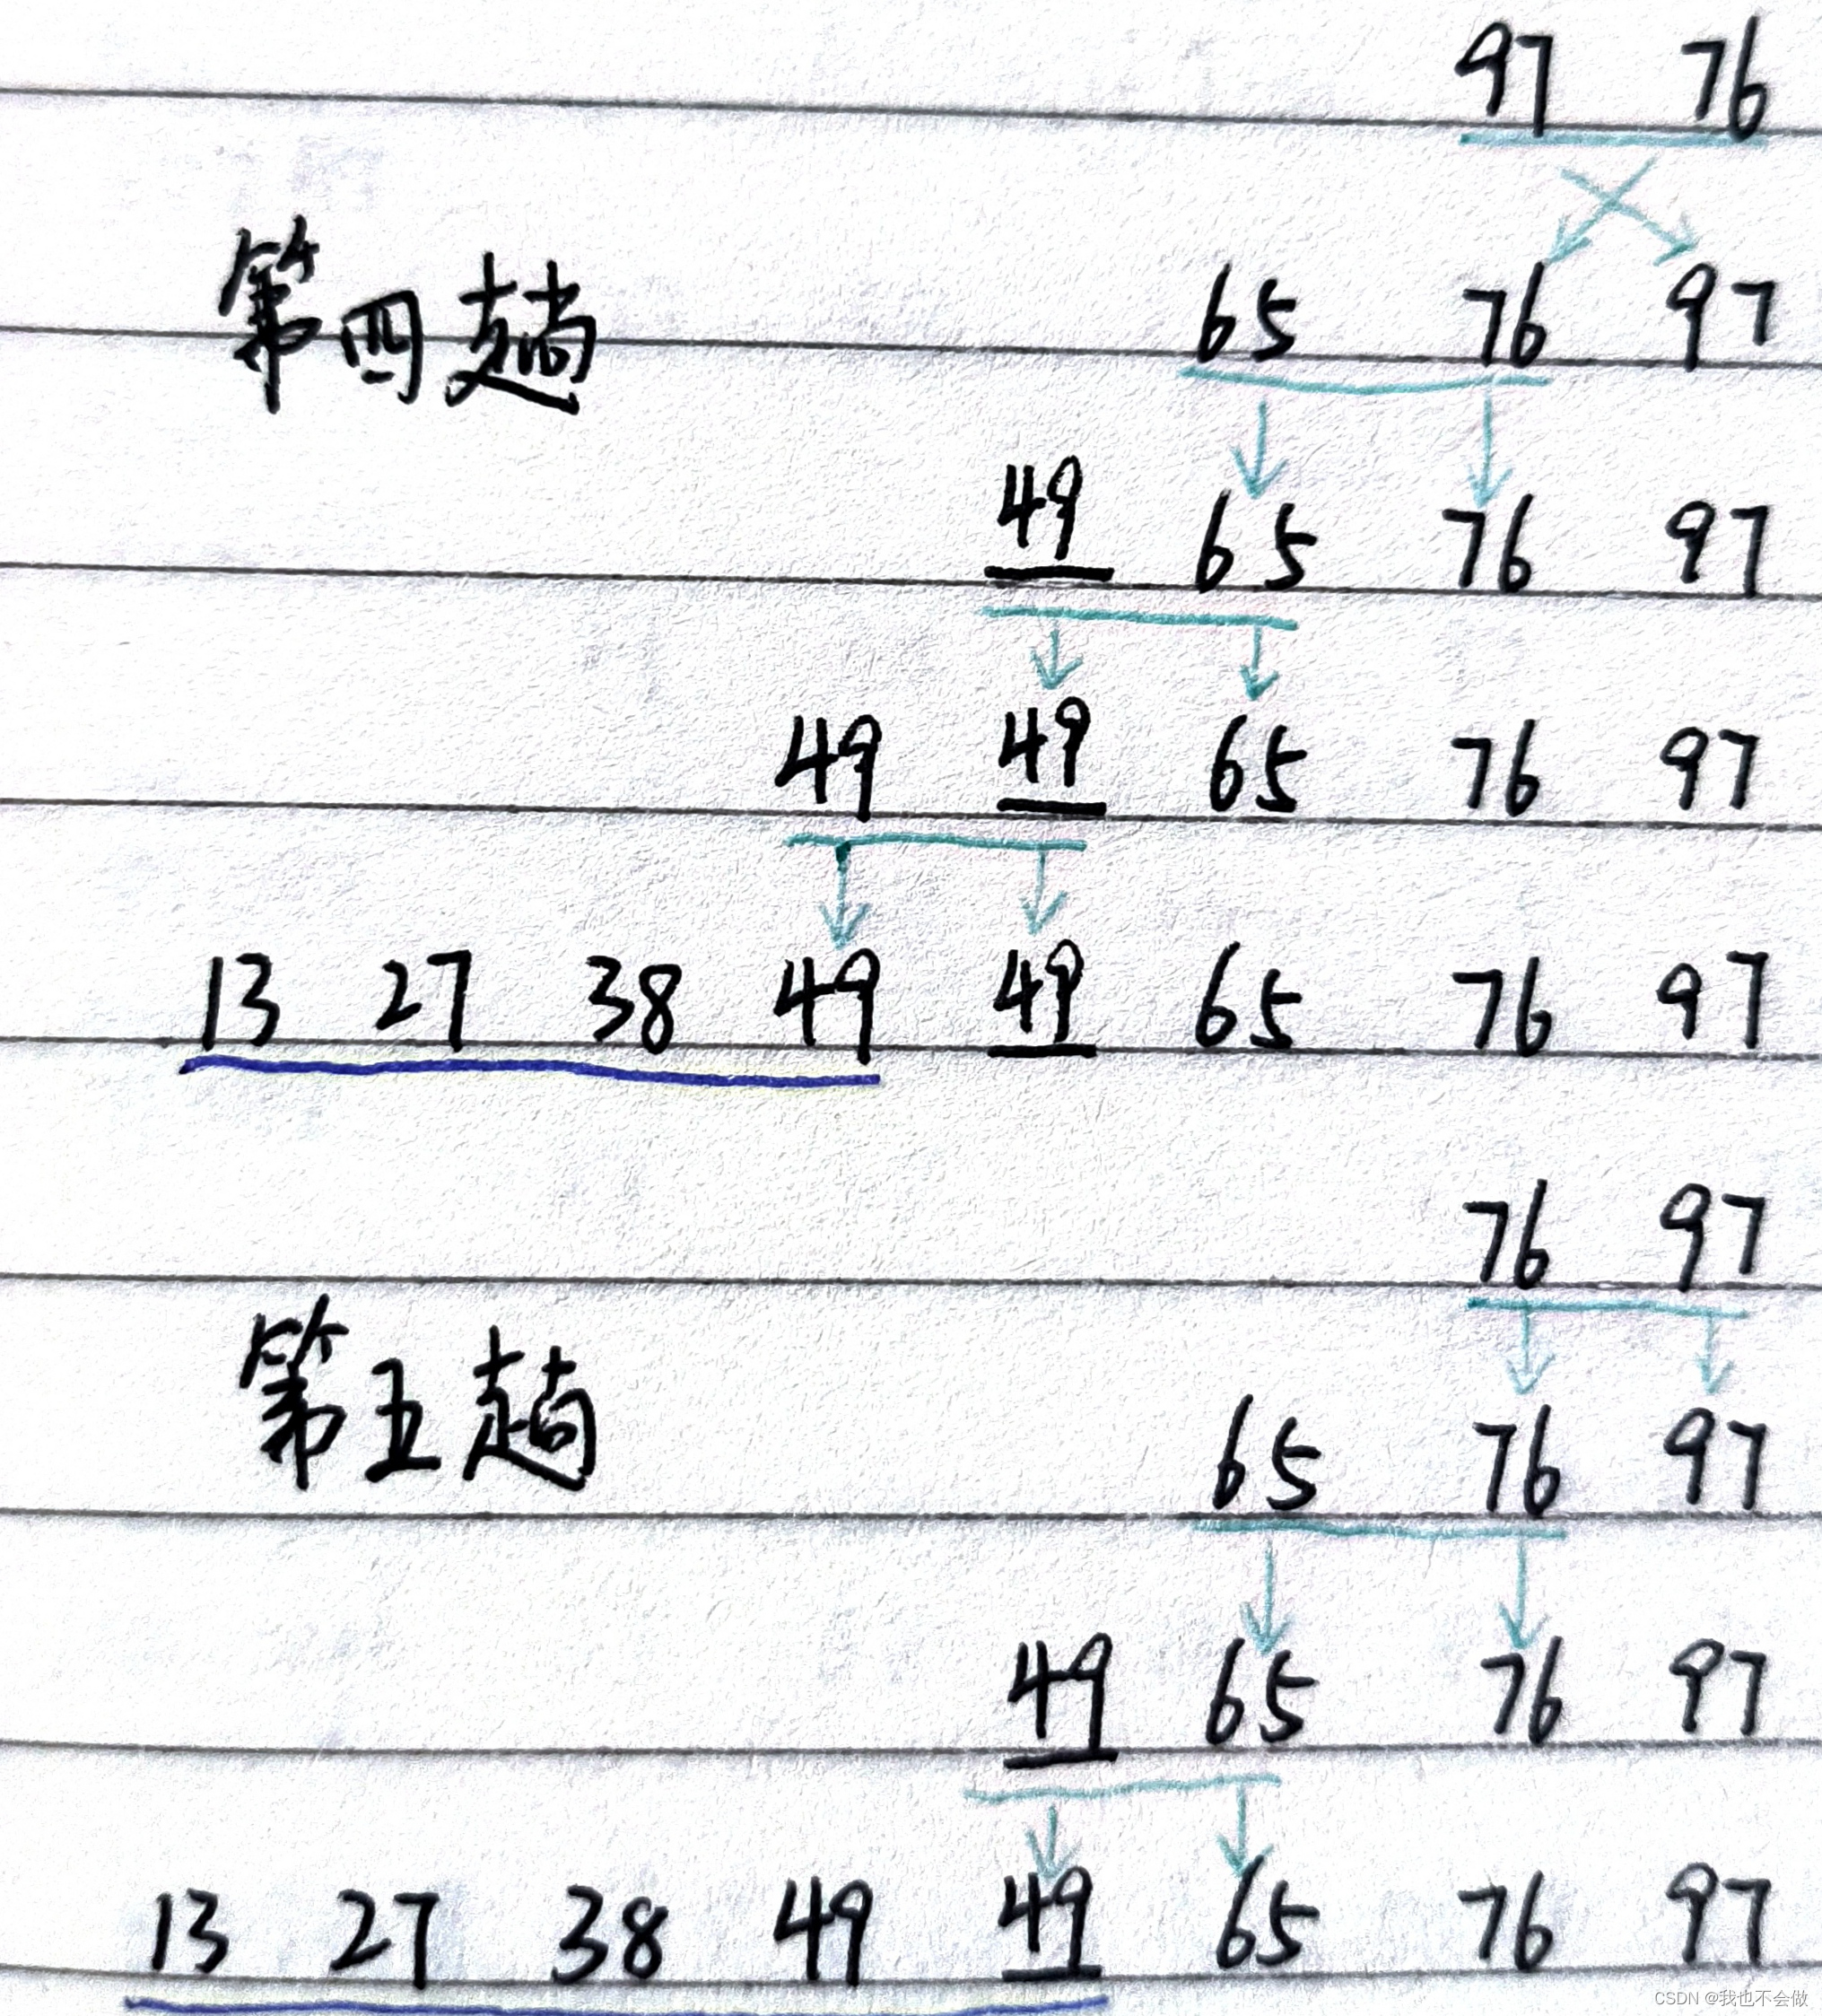 97 76
第四趟 65 76 97
49 65 76 97
49 49 65 76 97
13 27 38 49 49 65 76 97
76 97
第五趟 65 76 97
49 65 76 97
13 27 38 49 49 65 76 97
CSDN @我也不会做